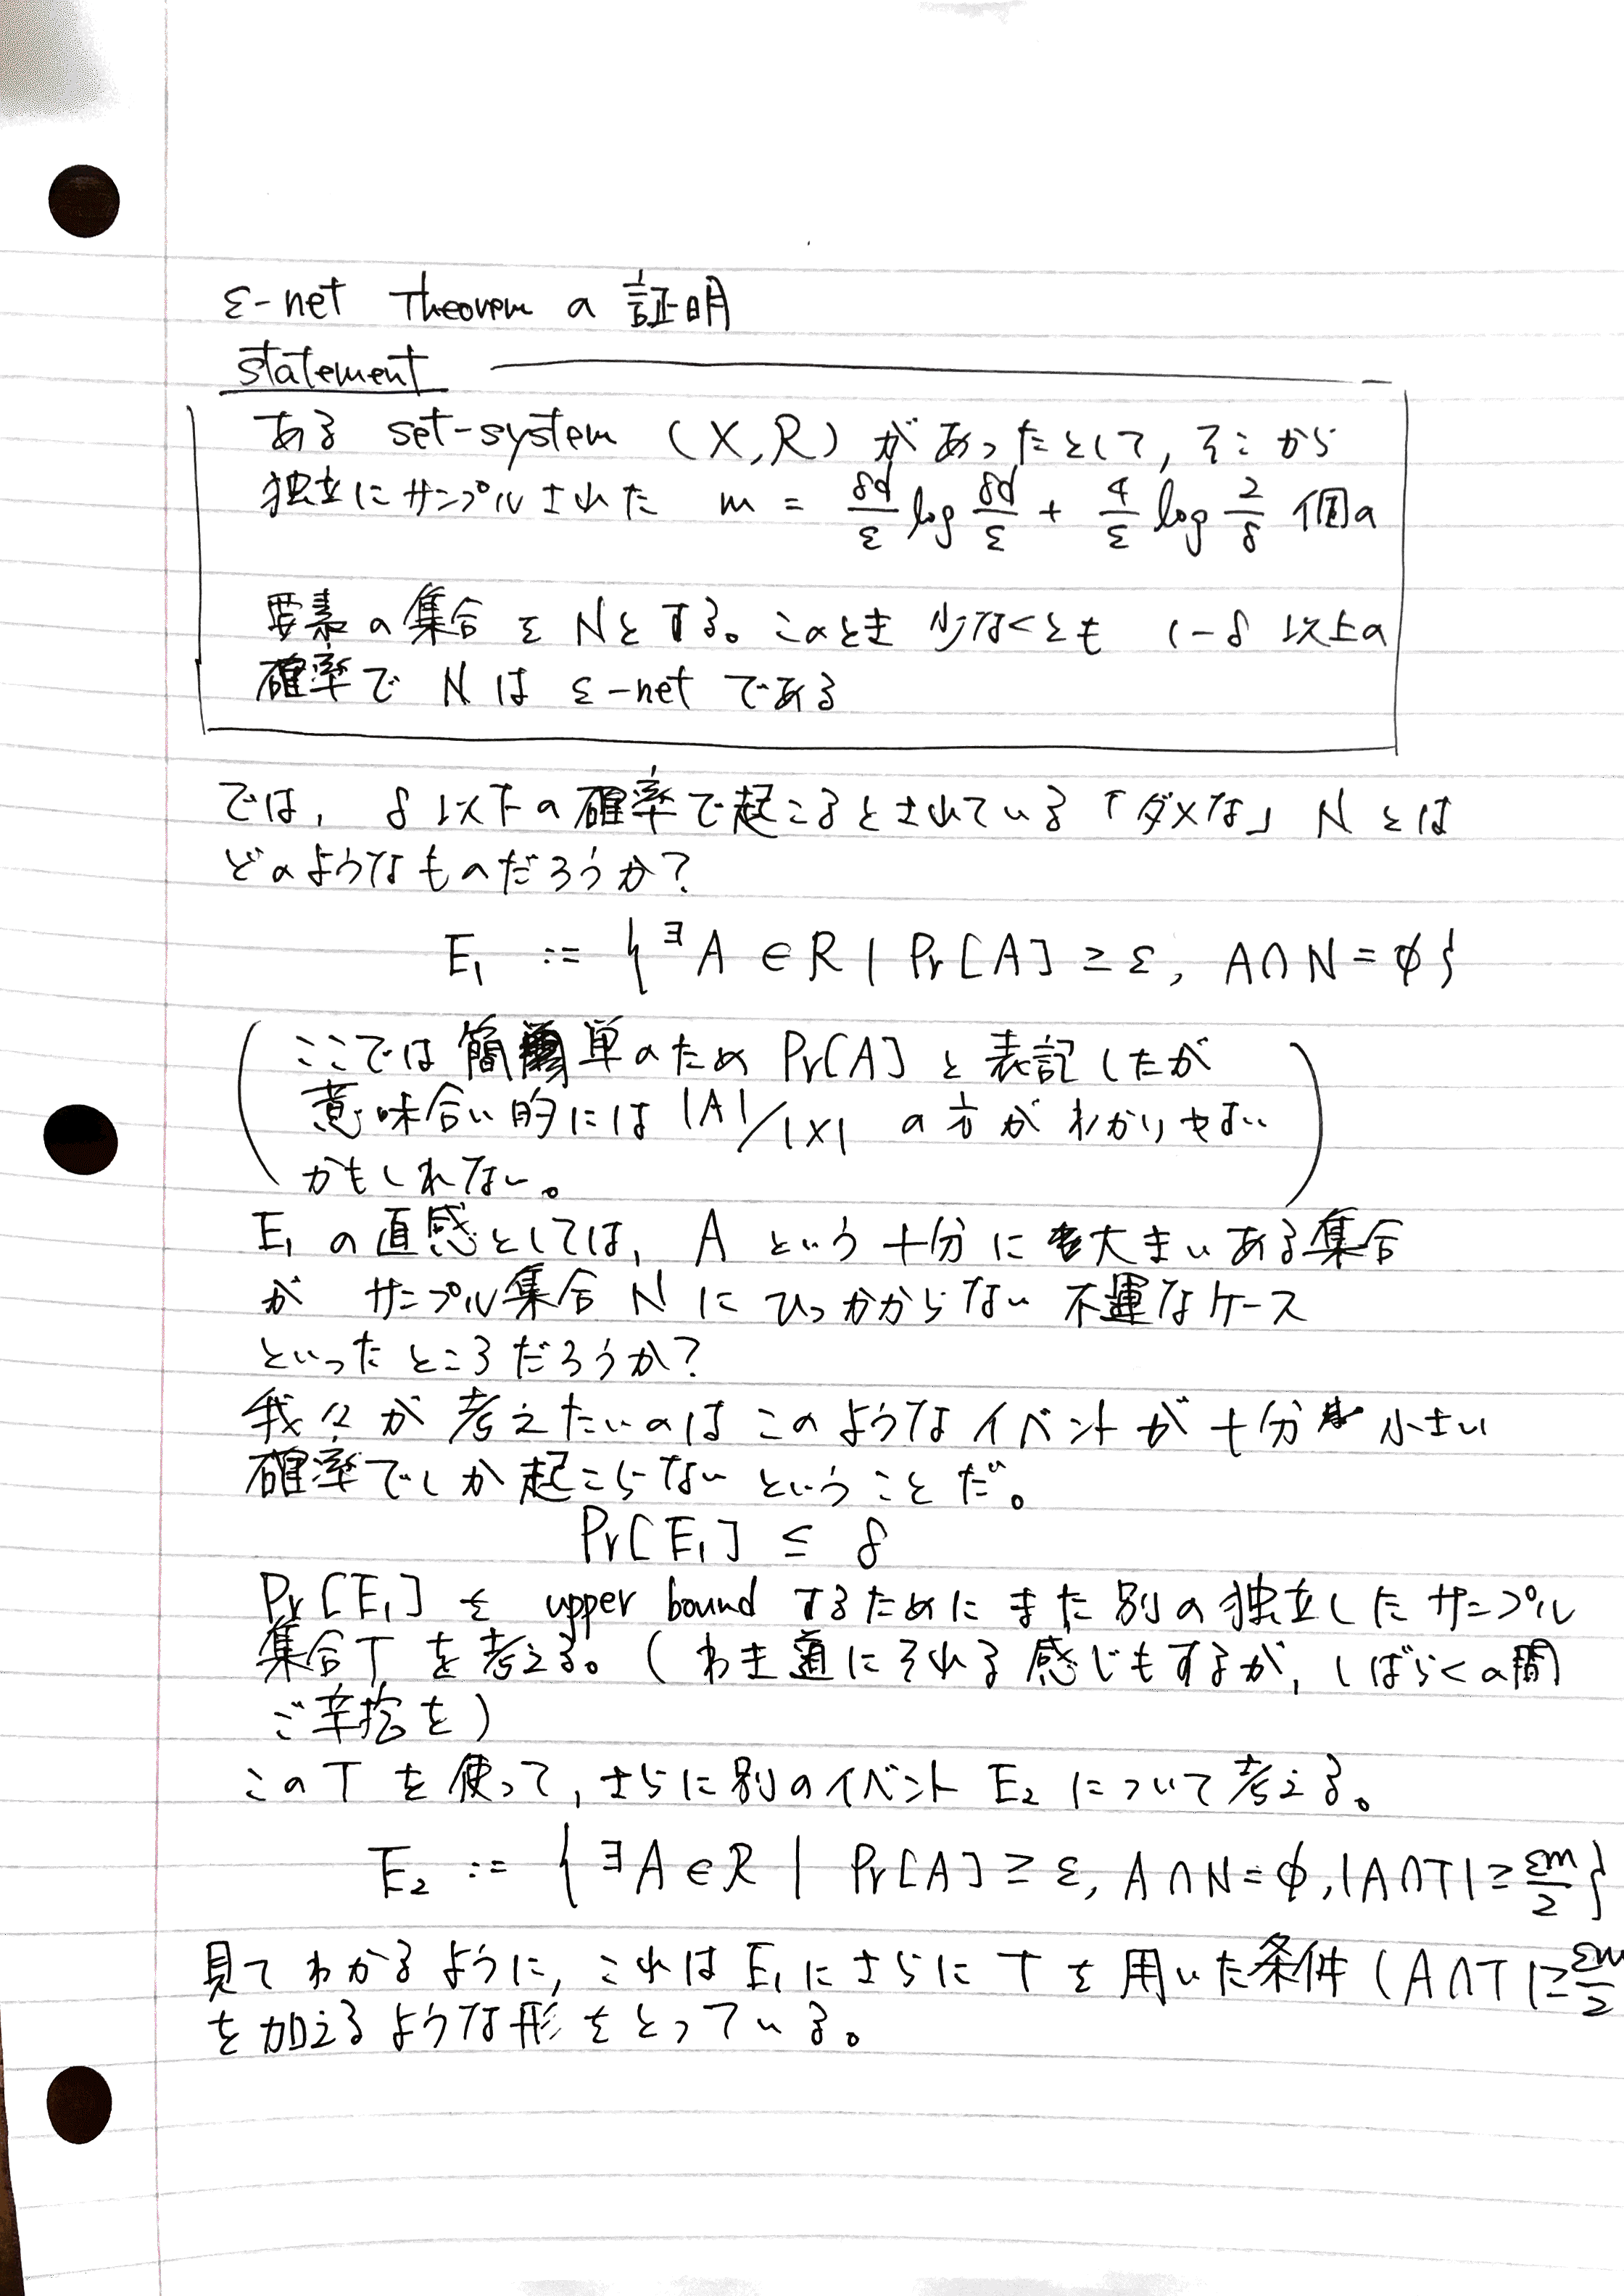 ε-net Theorem の 証明
statement
ある set-system (X, R) があったとして, そこから
独立にサンプルされた m = 8d/ε log 8d/ε + 4/ε log 2/δ 個の
要素の集合を Nとする。このとき 少なくとも 1-δ 以上の
確率で N は ε-net である
では, δ 以下の確率で起こるとされている「ダメな」 N とは
どのようなものだろうか?
E₁ := {∃A ∈ R | Pr[A] ≥ ε, A∩N = φ}
(ここでは簡単のため Pr[A] と表記したが
意味合い的には |A|/|X| の方がわかりやすい
かもしれない。)
E₁ の直感としては, A という十分に大きいある集合
が サンプル集合 N に ひっかからない 不運なケース
といったところだろうか?
我々が考えたいのはこのようなイベントが十分小さい
確率でしか起こらないということだ。
Pr[E₁] ≤ δ
Pr[E₁] を upper bound するためにまた別の独立したサンプル
集合T を考える。(わき道にそれる感じもするが, しばらくの間
ご辛抱を)
このT を使って, さらに別のイベント E₂ について考える。
E₂ := {∃A ∈ R | Pr[A] ≥ ε, A∩N = φ, |A∩T| ≥ εm/2}
見てわかるように, これは E₁にさらに T を用いた条件 |A∩T| ≥ εm/2
を加えるような形をとっている。